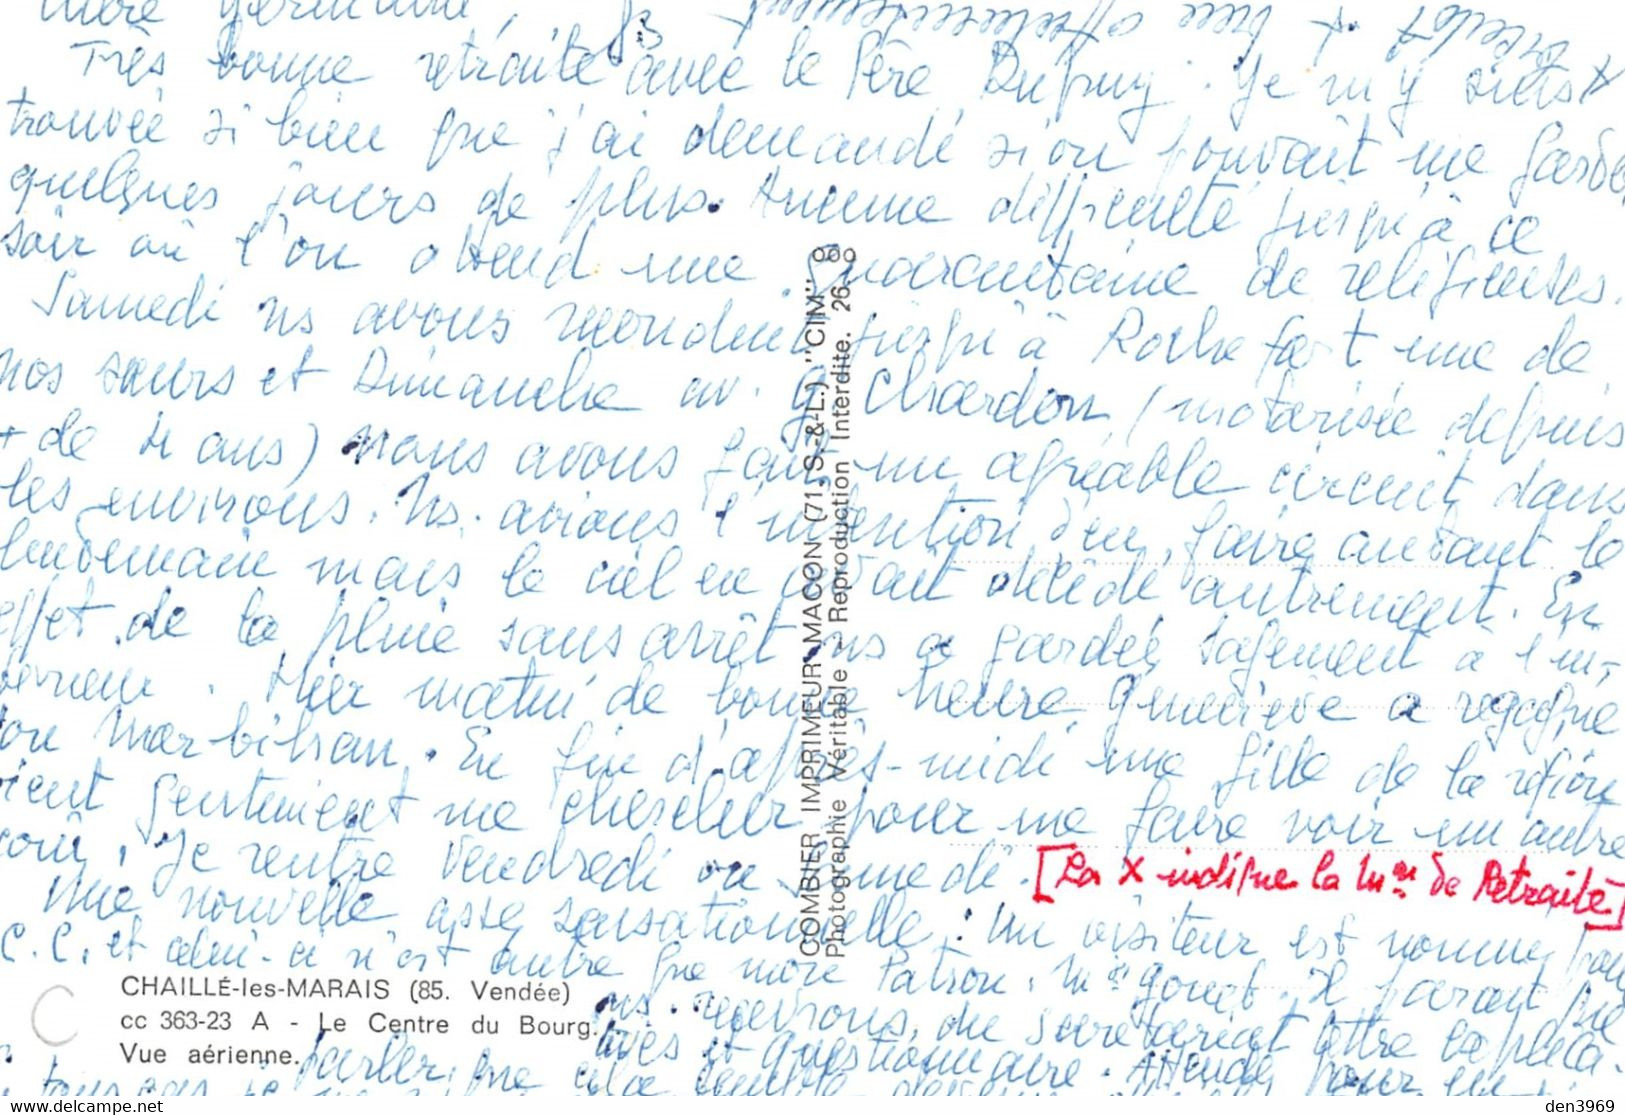 Très bonne retraite avec le Père Dupuy. Je m'y suis
trouvée si bien que j'ai demandé si on pouvait me garder
quelques jours de plus. Aucune difficulté jusqu'à ce
soir où l'on attend une quarantaine de religieuses.
Samedi ns avons reconduit jusqu'à Rochefort une de
nos sœurs et Dimanche av. g. Chardon (motorisée depuis
+ de 4 ans) nous avons fait un agréable circuit dans
les environs. Ns. avions l'intention d'en faire autant le
lendemain mais le ciel en avait décidé autrement. En
effet de la pluie sans arrêt ns a gardées sagement à l'in-
térieur. Hier matin de bonne heure Geneviève a regagné
son Morbihan. En fin d'après-midi une fille de la région
vient gentiment me chercher pour me faire voir un autre
coin. Je rentre Vendredi ou Samedi.
[La X indique la mon de Retraite]
Une nouvelle assez sensationnelle : Un visiteur est nommé pour
C.C. et celui-ci n'est autre que mon Patron. Mr Gouet. Il parait que
ns. recevrons, du secrétariat lettre explica-
tives et questionnaire. Attends pour en
parler que cela
COMBIER IMPRIMEUR MACON (71, S.-&-L.) "CIM"
Photographie Véritable - Reproduction Interdite. 26.
CHAILLÉ-les-MARAIS (85. Vendée)
cc 363-23 A - Le Centre du Bourg.
Vue aérienne.
den3969